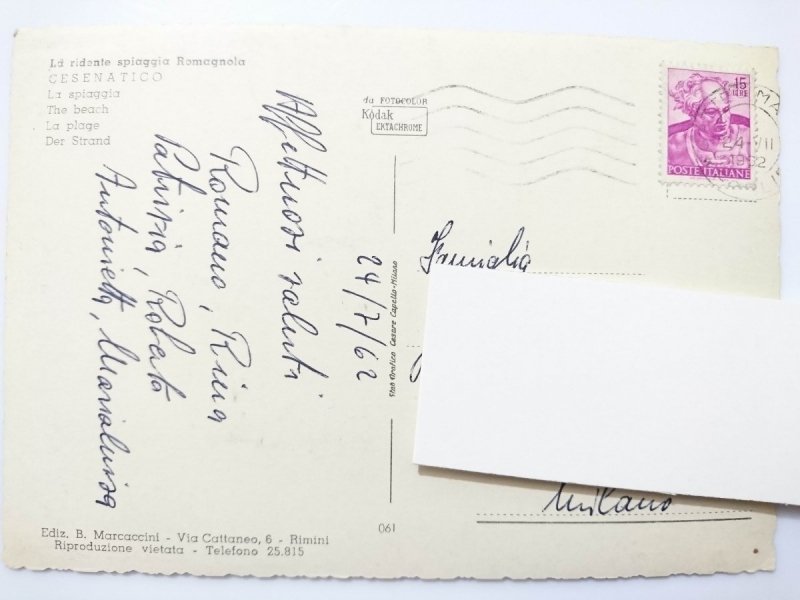 La ridente spiaggia Romagnola
CESENATICO
La spiaggia
The beach
La plage
Der Strand
Affettuosi saluti
Romano, Rina
Patrizia, Roberto
Antonietta, Marialuisa
24/7/62
da FOTOCOLOR
Kodak
EKTACHROME
Stab Grafico Cesare Capello-Milano
15
LIRE
POSTE ITALIANE
24-VII
1962
Famiglia
Milano
Ediz. B. Marcaccini - Via Cattaneo, 6 - Rimini
Riproduzione vietata - Telefono 25.815
061